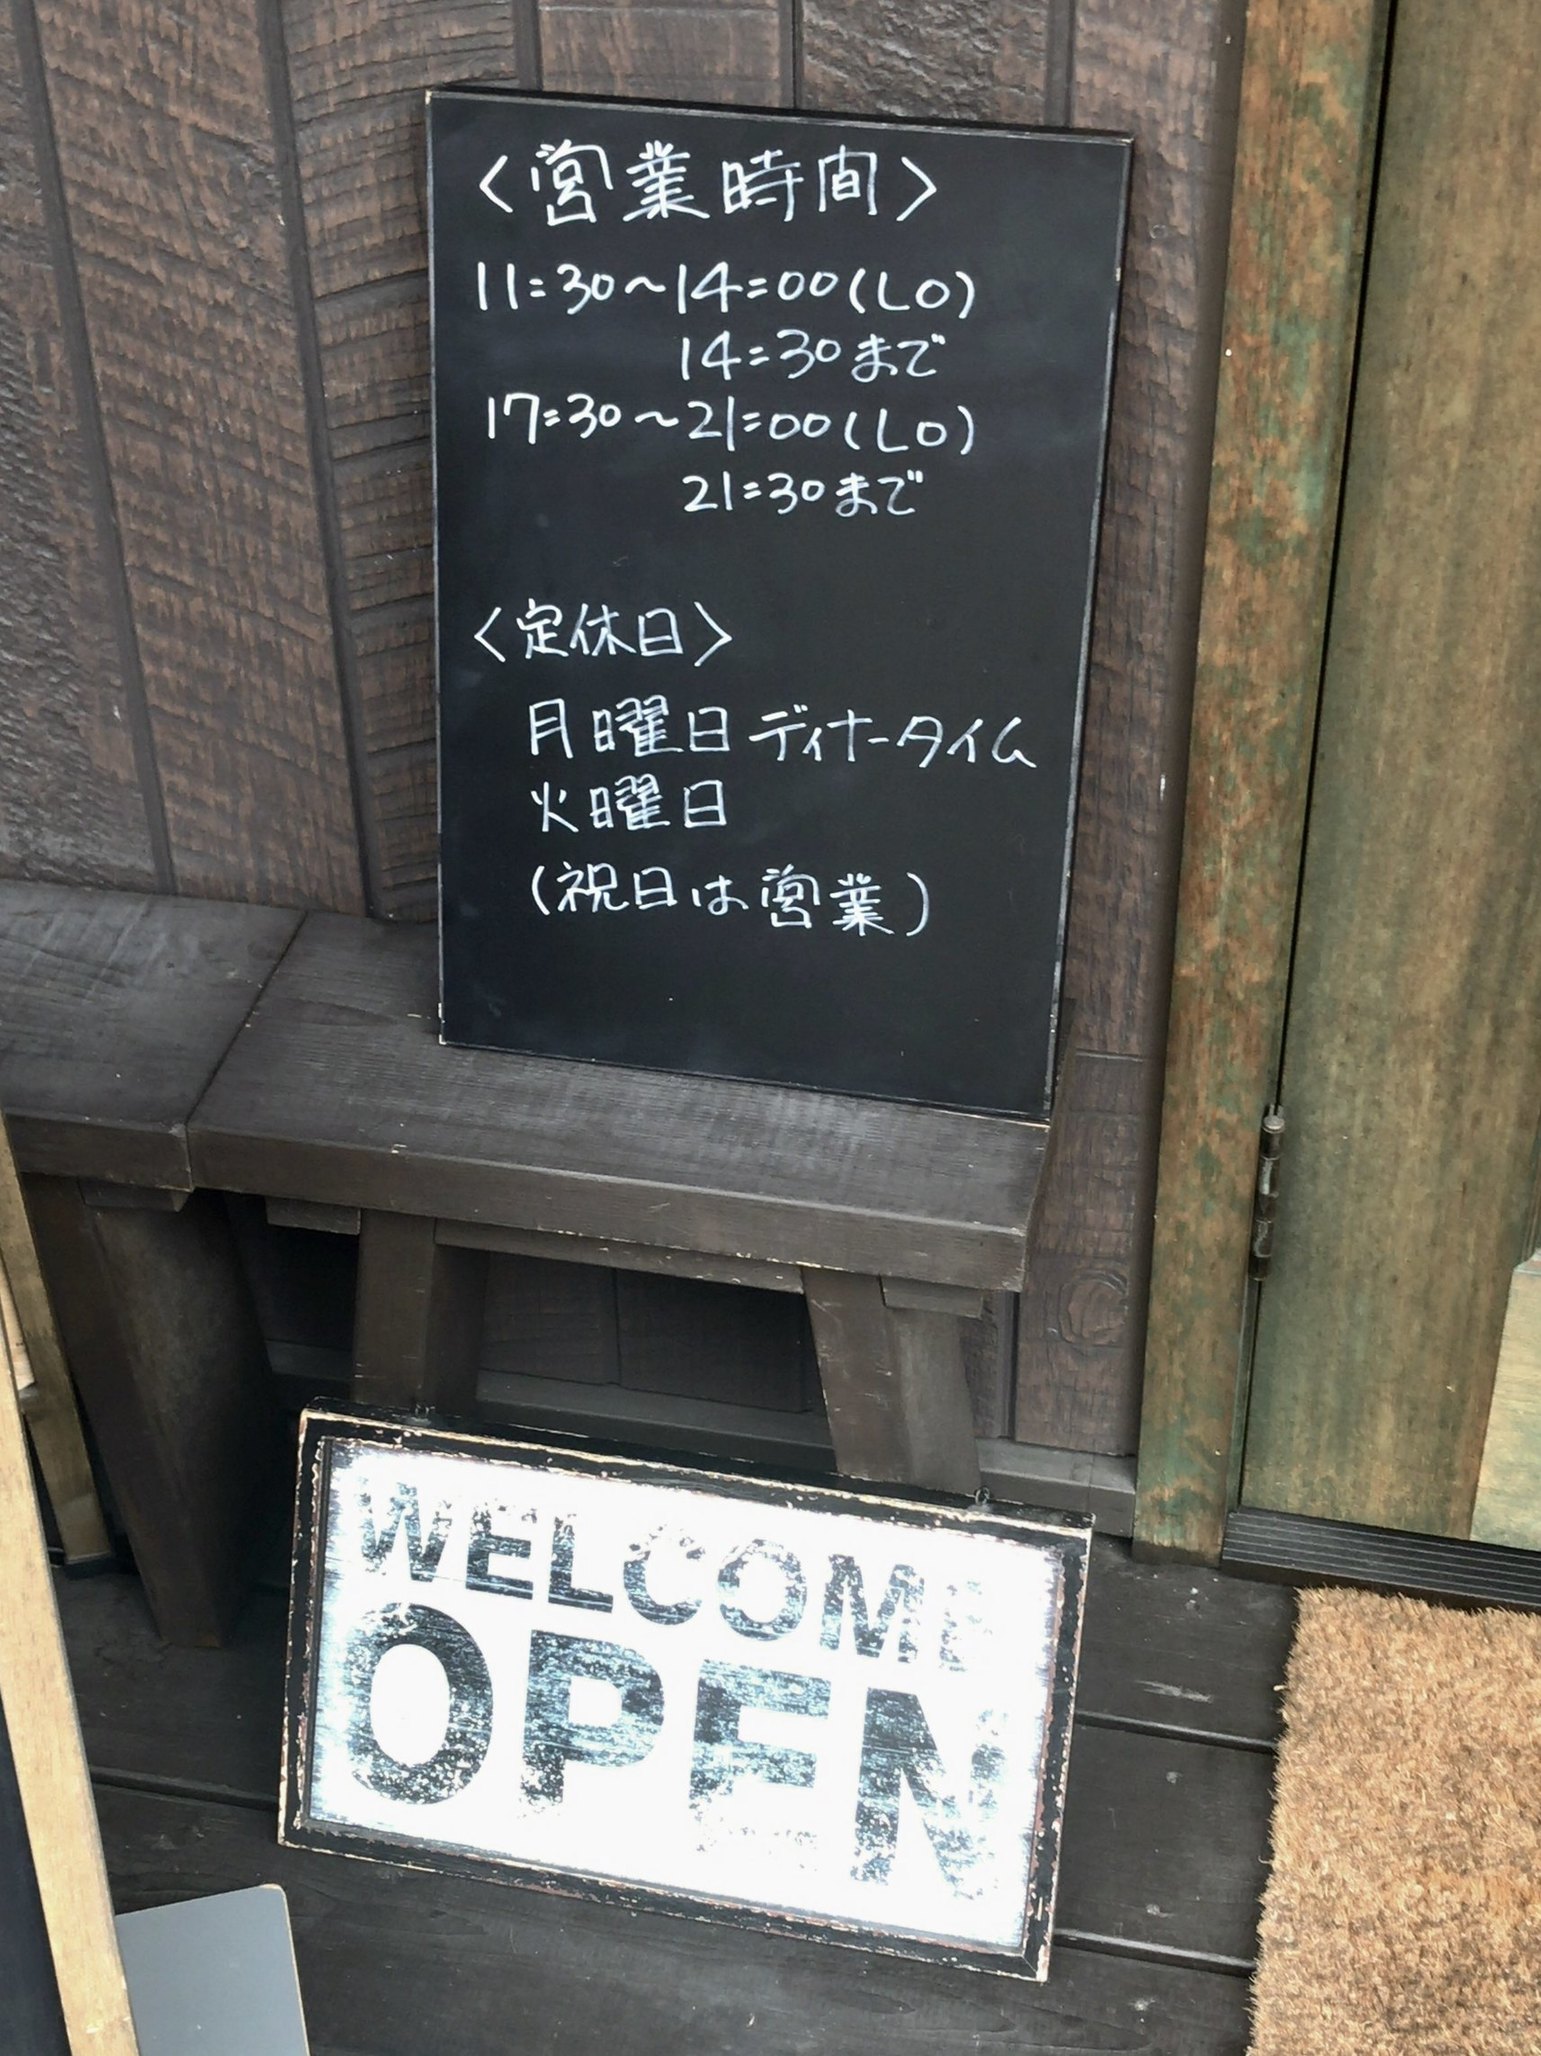 〈営業時間〉
11:30～14:00(LO)
14:30まで
17:30～21:00(LO)
21:30まで
〈定休日〉
月曜日ディナータイム
火曜日
(祝日は営業)
WELCOME
OPEN